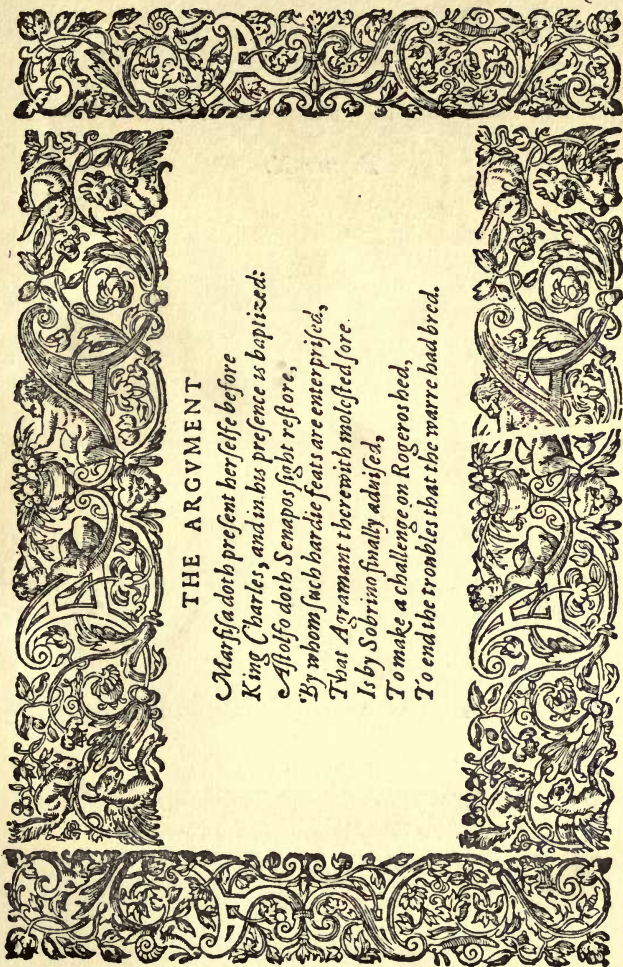 THE ARGVMENT
Marfisa doth present herselfe before
King Charles, and in his presence is baptized:
Astolfo doth Senapos sight restore,
By whom such hardie feats are enterprised,
That Agramant therewith molested sore
Is by Sobrino finally aduised,
To make a challenge on Rogeros hed,
To end the troubles that the warre had bred.